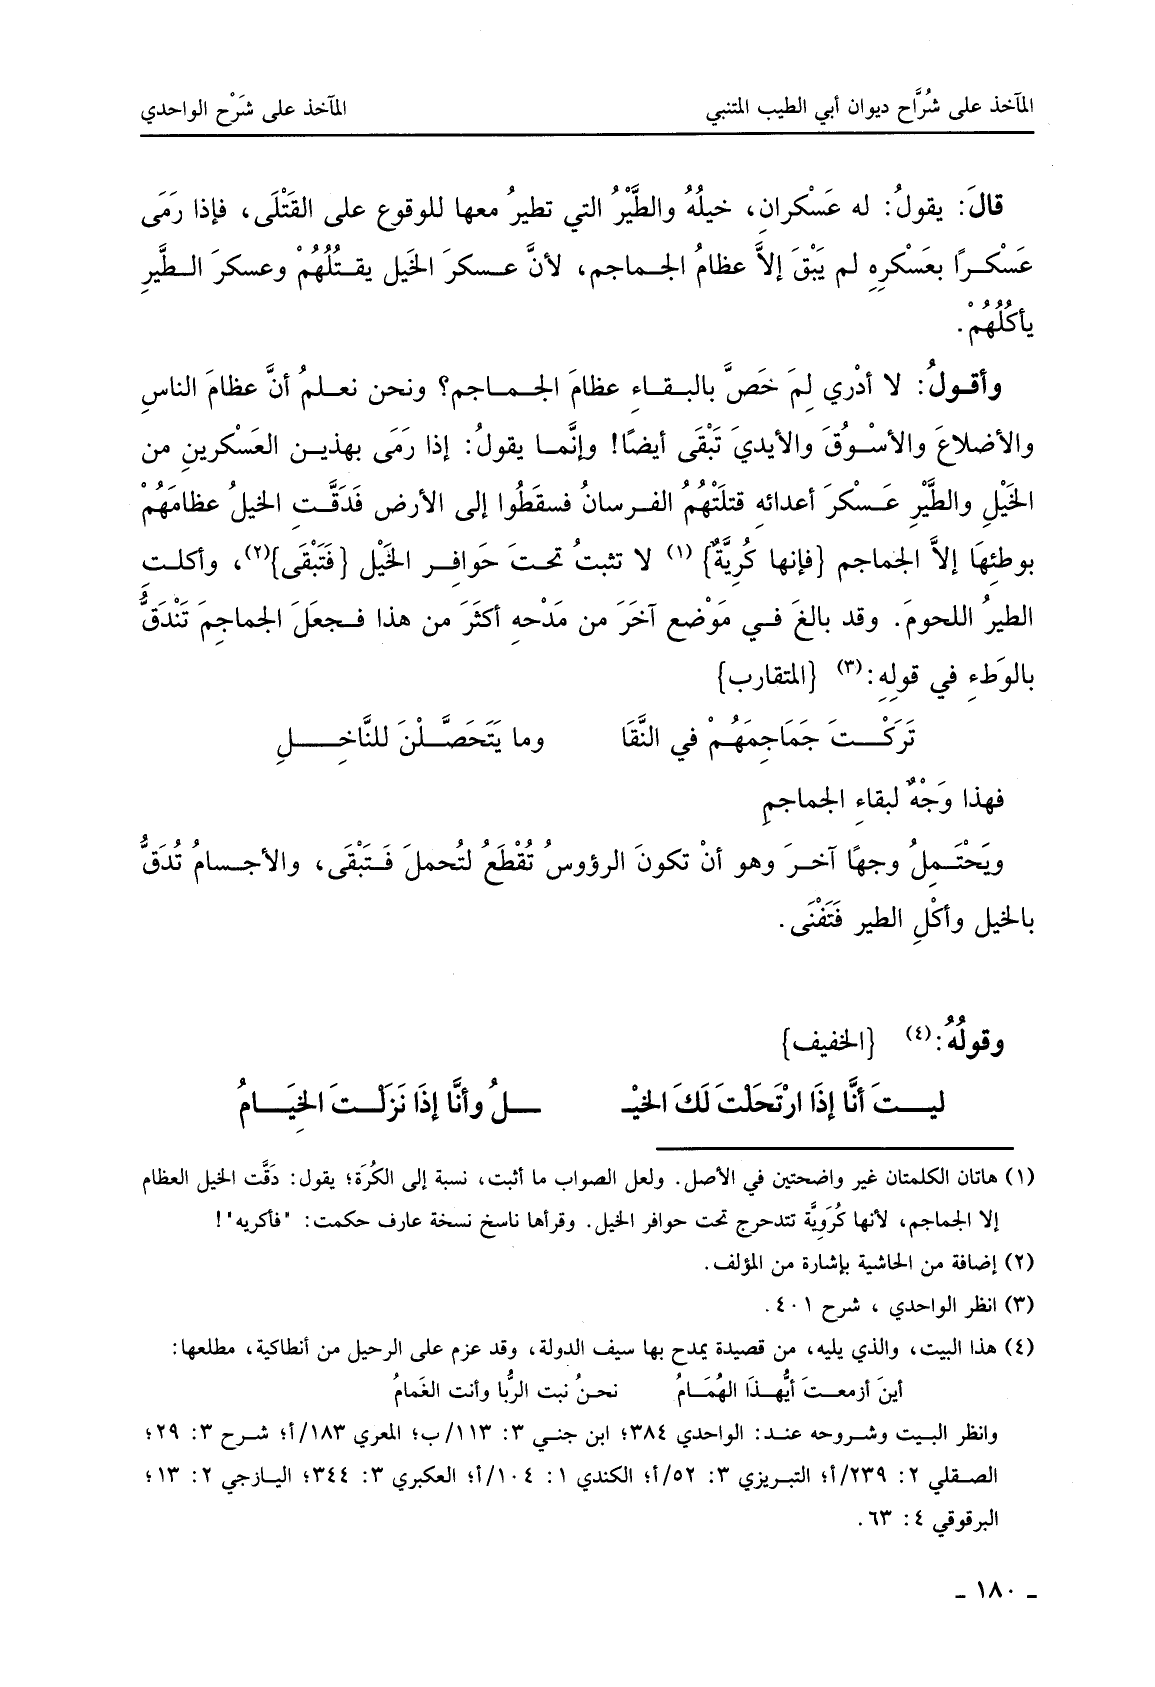 المآخذ على شُرَّاح ديوان أبي الطيب المتنبي المآخذ على شَرْح الواحدي
قالَ: يقولُ: له عَسْكرانِ، خيلُهُ والطَّيْرُ التي تطيرُ معها للوقوع على القَتْلَى، فإذا رمَى
عَسْكرًا بعَسْكرِهِ لم يَبْقَ إلاَّ عظامُ الجماجم، لأنَّ عسكرَ الخَيل يقتُلُهُمْ وعسكرَ الطَّيرِ
يأكُلُهُمْ.
وأقولُ: لا أدْري لِمَ خَصَّ بالبقاءِ عظامَ الجماجمِ؟ ونحن نعلمُ أنَّ عظامَ الناسِ
والأضلاعَ والأسْوُقَ والأيديَ تَبْقَى أيضًا! وإنَّما يقولُ: إذا رَمَى بهذين العَسْكرينِ من
الخَيْلِ والطَّيْرِ عَسْكرَ أعدائهِ قتلَتْهُمُ الفرسانُ فسقَطُوا إلى الأرض فَدَقَّتِ الخيلُ عظامَهُمْ
بوطئِهَا إلاَّ الجماجم {فإنها كُرِيَّةٌ} (١) لا تثبتُ تحتَ حَوافِر الخَيْل {فَتَبْقَى}(٢)، وأكلت
الطيرُ اللحومَ. وقد بالغَ في مَوْضع آخَرَ من مَدْحهِ أكثَرَ من هذا فجعَلَ الجماجِمَ تَنْدَقُّ
بالوَطءِ في قولِهِ:(٣) {المتقارب}
تَرَكْتَ جَمَاجِمَهُمْ في النَّقَا وما يَتَحَصَّلْنَ للنَّاخِلِ
فهذا وَجْهٌ لبقاءِ الجماجمِ
ويَحْتَمِلُ وجهًا آخرَ وهو أنْ تكونَ الرؤوسُ تُقْطَعُ لتُحملَ فَتَبْقَى، والأجسامُ تُدَقُّ
بالخيل وأكْلِ الطير فَتَفْنَى.
وقولُهُ:(٤) {الخفيف}
ليتَ أنَّا إذَا ارْتَحَلْتَ لَكَ الخَيْـ ـلُ وأنَّا إذَا نَزَلْتَ الخِيَامُ
(١) هاتان الكلمتان غير واضحتين في الأصل. ولعل الصواب ما أثبت، نسبة إلى الكُرَة؛ يقول: دَقَّت الخيل العظام
إلا الجماجم، لأنها كُرَوِيَّة تتدحرج تحت حوافر الخيل. وقرأها ناسخ نسخة عارف حكمت: "فأكريه"!
(٢) إضافة من الحاشية بإشارة من المؤلف.
(٣) انظر الواحدي ، شرح ٤٠١.
(٤) هذا البيت، والذي يليه، من قصيدة يمدح بها سيف الدولة، وقد عزم على الرحيل من أنطاكية، مطلعها:
أينَ أزمعتَ أيُّهذَا الهُمَامُ نحنُ نبت الرُّبا وأنت الغَمامُ
وانظر البيت وشروحه عند: الواحدي ٣٨٤؛ ابن جني ٣: ١١٣/ب؛ المعري ١٨٣/أ؛ شرح ٣: ٢٩؛
الصقلي ٢: ٢٣٩/أ؛ التبريزي ٣: ٥٢/أ؛ الكندي ١: ١٠٤/أ؛ العكبري ٣: ٣٤٤؛ اليازجي ٢: ١٣؛
البرقوقي ٤: ٦٣.
ـ ١٨٠ ـ